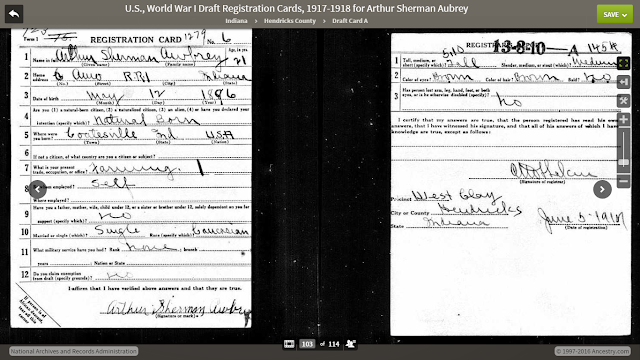 U.S., World War I Draft Registration Cards, 1917-1918 for Arthur Sherman Aubrey
Indiana › Hendricks County › Draft Card A
SAVE
Form 1
REGISTRATION CARD No. 6
1 Name in full Arthur Sherman Awbrey Age, in yrs. 21
(Given name) (Family name)
2 Home address Amo R.R.1 Indiana
(No.) (Street) (City) (State)
3 Date of birth May 12 1896
(Month) (Day) (Year)
Are you (1) a natural-born citizen, (2) a naturalized citizen, (3) an alien, (4) or have you declared your
4 intention (specify which)? Natural Born
5 Where were you born? Coatesville Ind USA
(Town) (State) (Nation)
6 If not a citizen, of what country are you a citizen or subject?
7 What is your present trade, occupation, or office? Farming
8 By whom employed? Self
Where employed?
Have you a father, mother, wife, child under 12, or a sister or brother under 12, solely dependent on you for
9 support (specify which)? No
10 Married or single (which)? Single Race (specify which)? Caucasian
11 What military service have you had? Rank None ; branch
years Nation or State
12 Do you claim exemption from draft (specify grounds)? No
I affirm that I have verified above answers and that they are true.
Arthur Sherman Awbrey
(Signature or mark)
If person is of African descent, tear off this corner
13-8-10-A
1 Tall, medium, or short (specify which)? Tall Slender, medium, or stout (which)? Medium
2 Color of eyes? Brown Color of hair? Brown Bald? No
3 Has person lost arm, leg, hand, foot, or both eyes, or is he otherwise disabled (specify)? No
I certify that my answers are true, that the person registered has read his own answers, that I have witnessed his signature, and that all of his answers of which I have knowledge are true, except as follows:
(Signature of registrar)
Precinct West Clay
City or County Hendricks
State Indiana
June 5-1917
(Date of registration)
103 of 114
National Archives and Records Administration
© 1997-2016 Ancestry.com